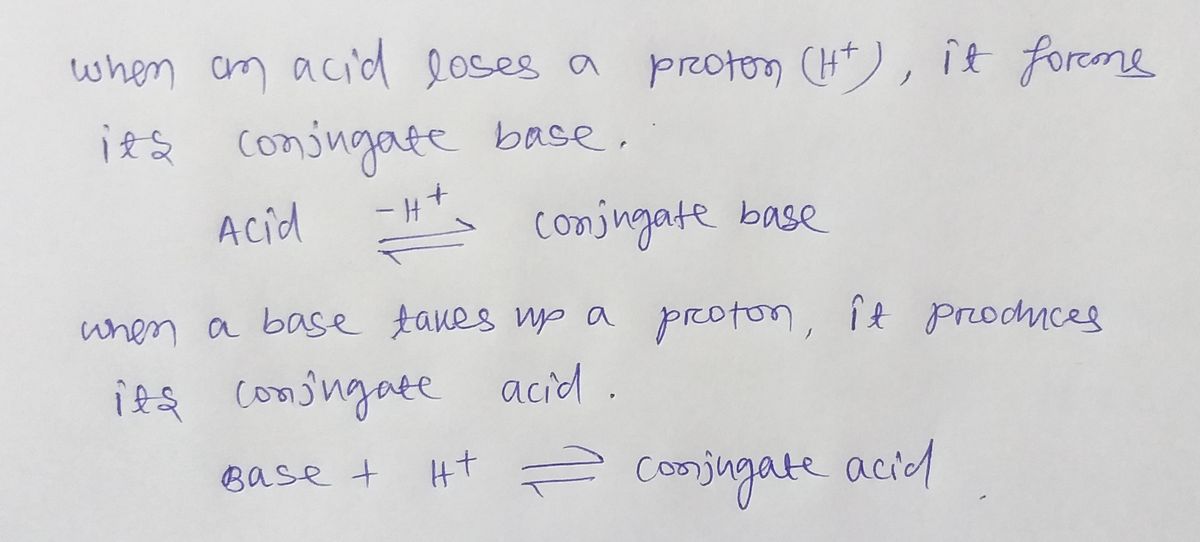 when an acid loses a proton (H⁺), it forms
its conjugate base.
Acid ⇌ -H⁺ conjugate base
when a base takes up a proton, it produces
its conjugate acid.
Base + H⁺ ⇌ conjugate acid